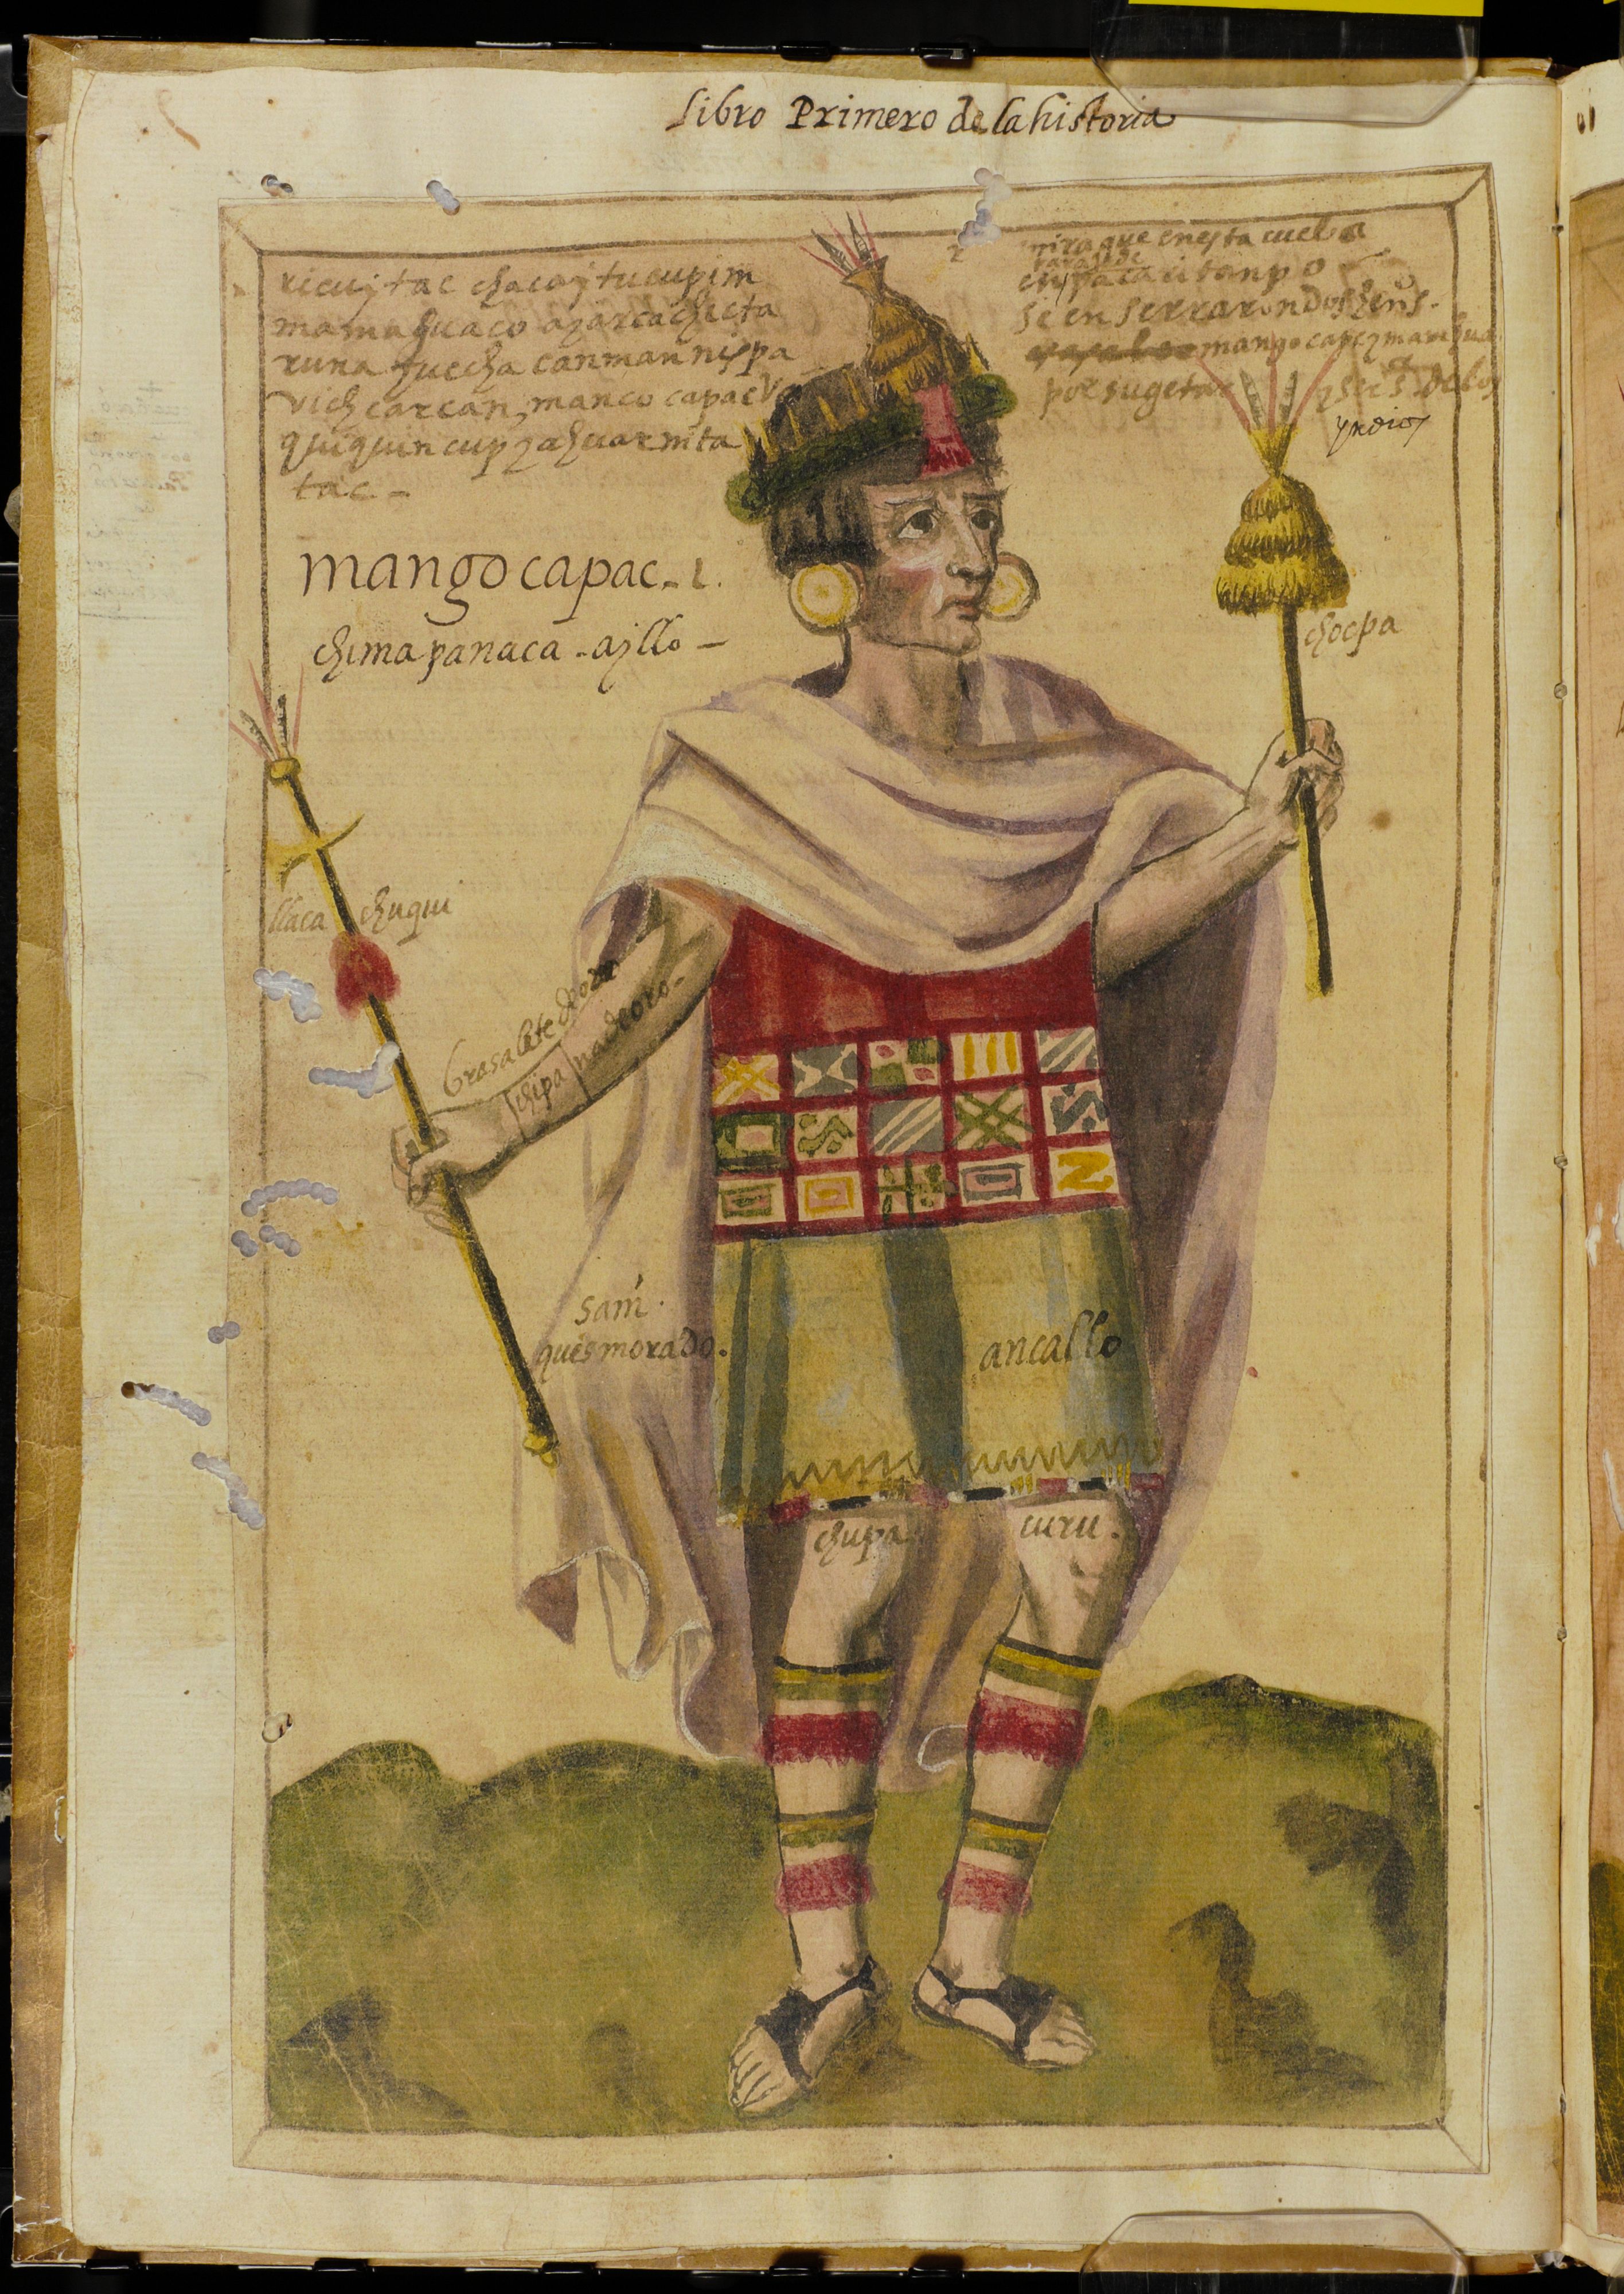 Libro Primero de la historia
ricuy tac chacay tucupim
mama huaco ayarcachicta
runa quecha canman nispa
vichcarcan, manco capac
quiquin cup yahuarnita
tac -
mira que en esta cueba
para
pacaritanpo
se enserraron dos
mango capac y mam hua
por sugetar y ser s. de los
yndios
mango capac - 1.
chima panaca - ayllo -
chocpa
llaca chuqui
brasalete de oro
chipana de oro -
sam.
ques morado.
ancallo
chupa curu.